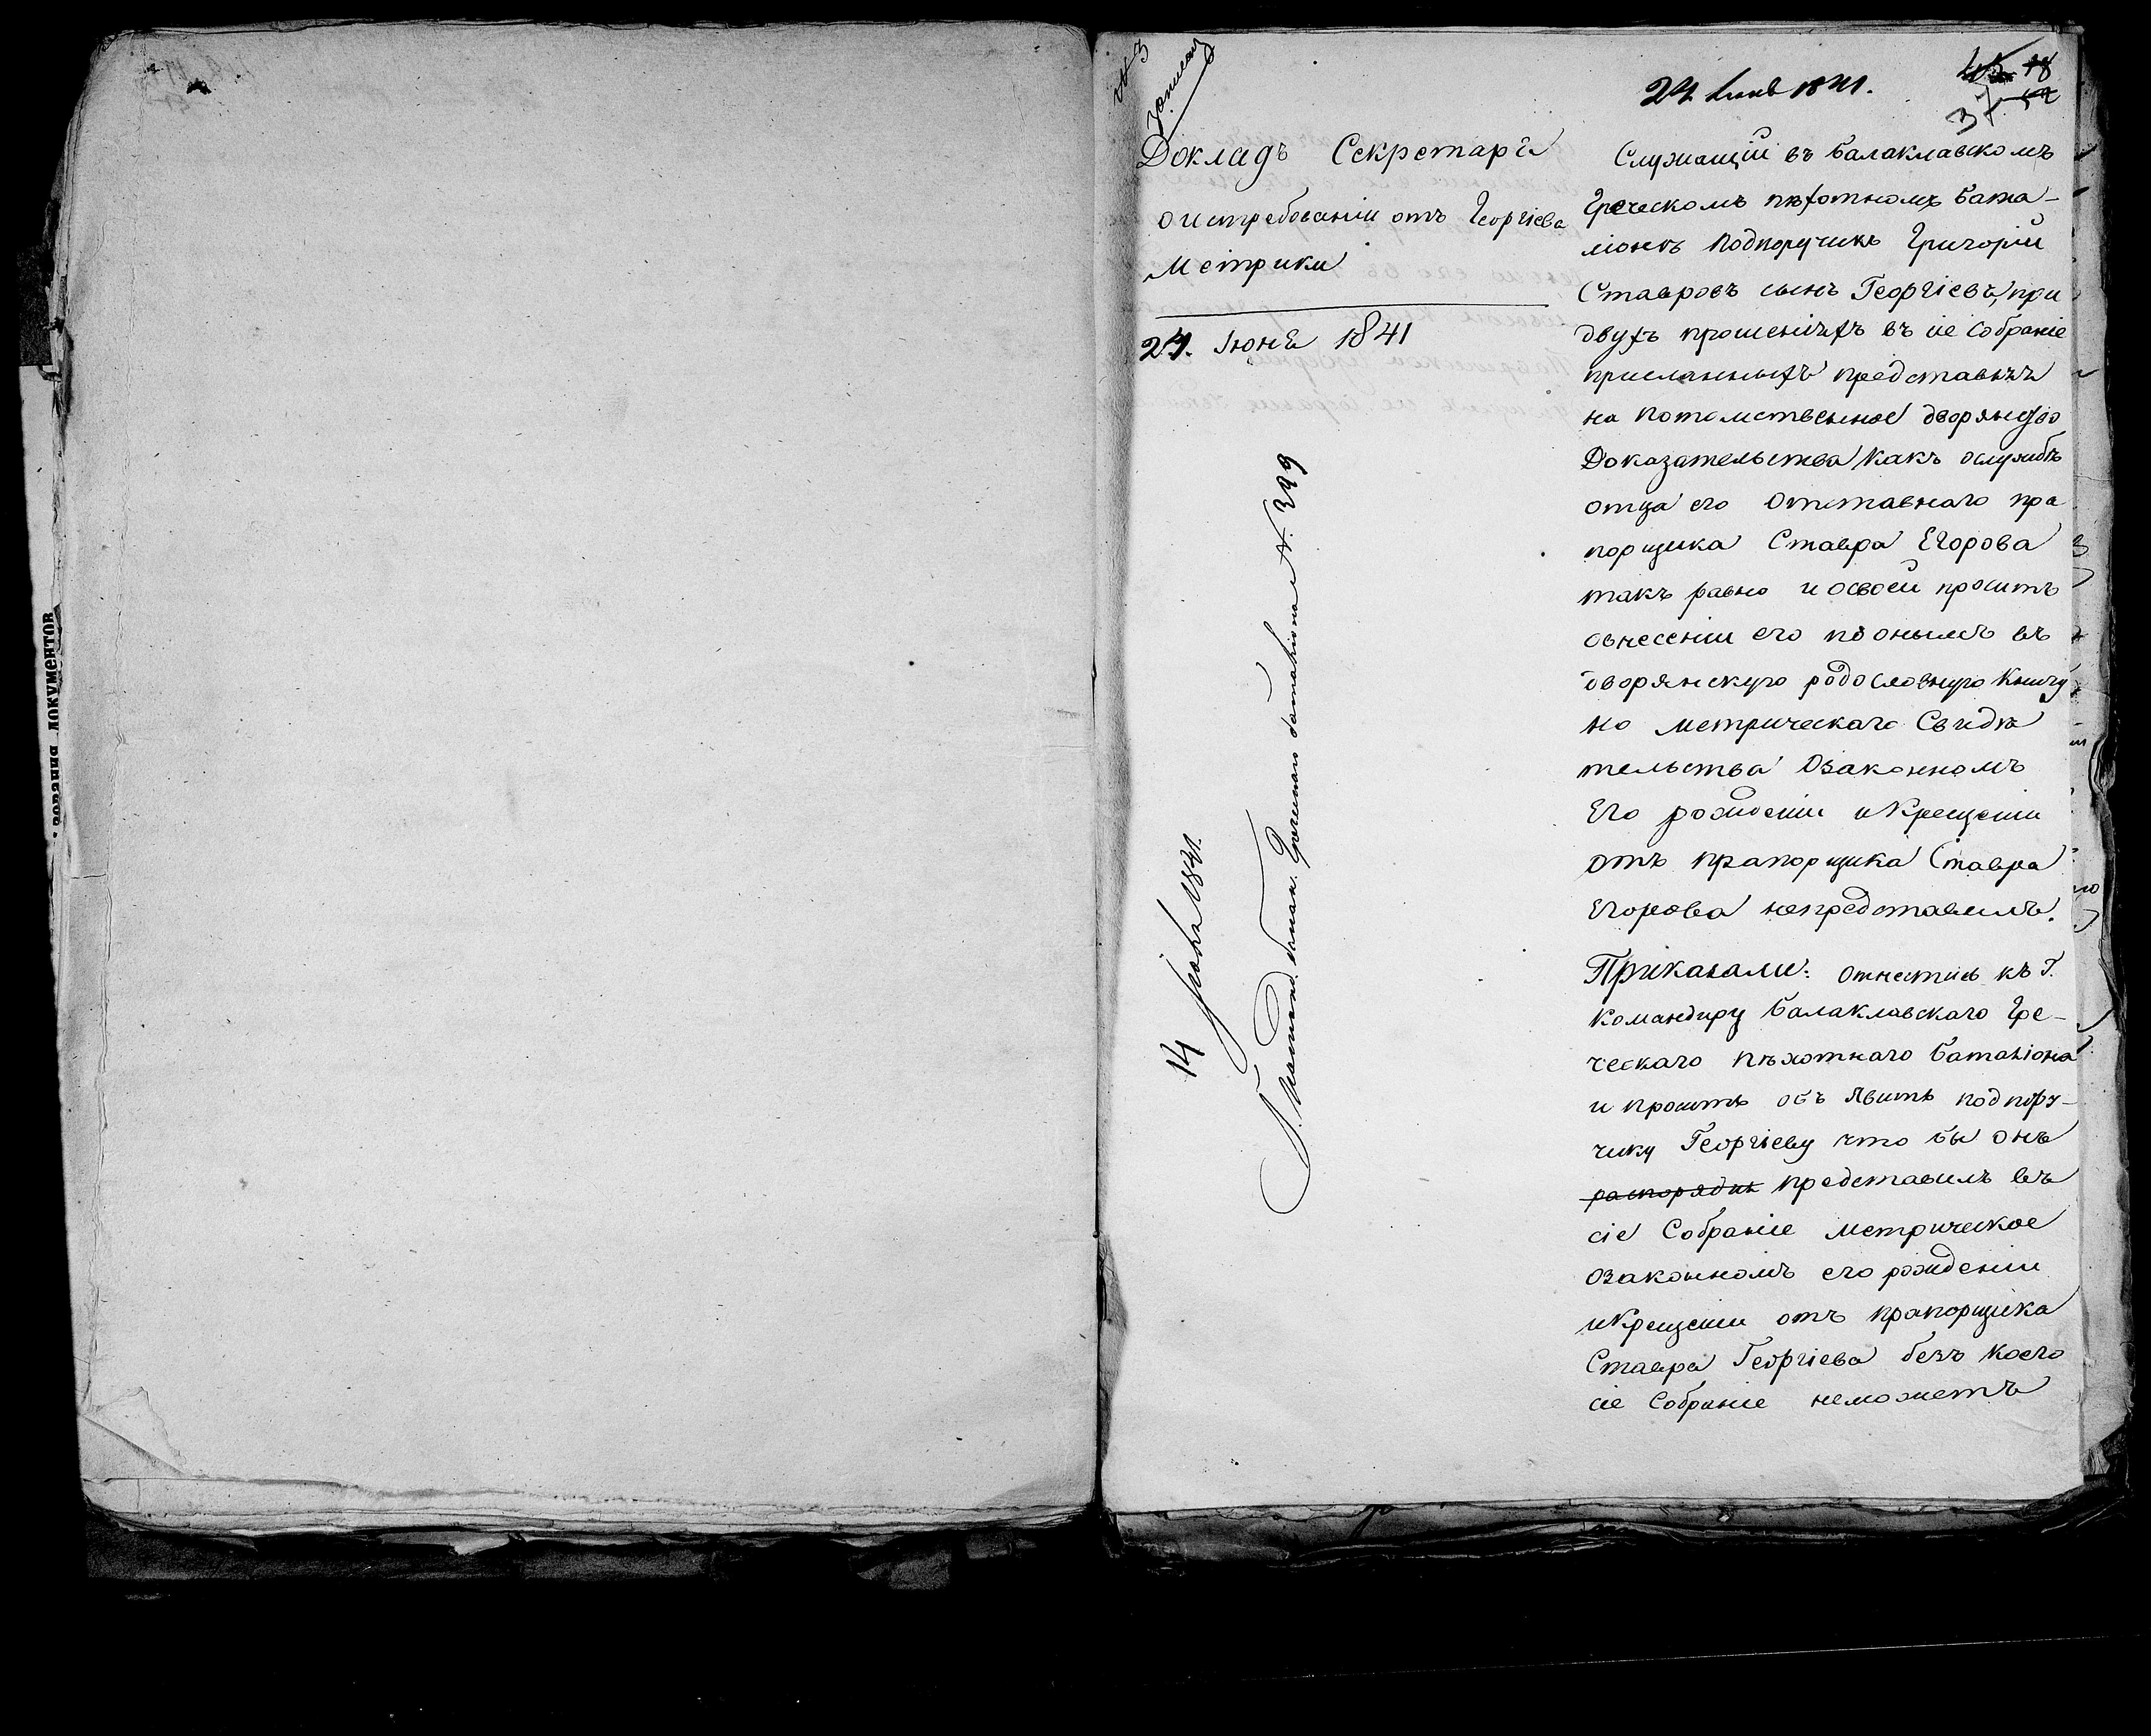 № 3
записанъ
Докладъ Секретаря
о истребованіи отъ Георгіева
Метрики
24. Іюня 1841
14 Іюня 1841.
Греческаго баталіона N. 399
37
24 1841.
Служащій въ Балаклавскомъ
Греческомъ пѣхотномъ бата-
ліонѣ Подпоручикъ Григорій
Ставровъ сынъ Георгіевъ, при
двухъ прошеніяхъ въ сіе Собраніе
присланныхъ представилъ
на потомственное дворянство
Доказательства какъ ослужбѣ
отца его Отставнаго пра
порщика Ставра Егорова
такъ равно и освоей проситъ
овнесеніи его по онымъ въ
дворянскую родословную Книгу
но метрическаго Свидѣ
тельства Озаконномъ
Его рожденіи и Крещеніи
отъ прапорщика Ставра
Егорова непредставилъ.
Приказали: отнестись къ Г.
Командиру Балаклавскаго Гре-
ческаго пѣхотнаго баталіона
и просить объявить подпору-
чику Георгіеву что бы онъ
распорядил представилъ въ
сіе Собраніе метрическое
Озаконномъ его рожденіи
иКрещеніи отъ прапорщика
Ставра Георгіева безъ коего
сіе Собраніе неможетъ
зования документов